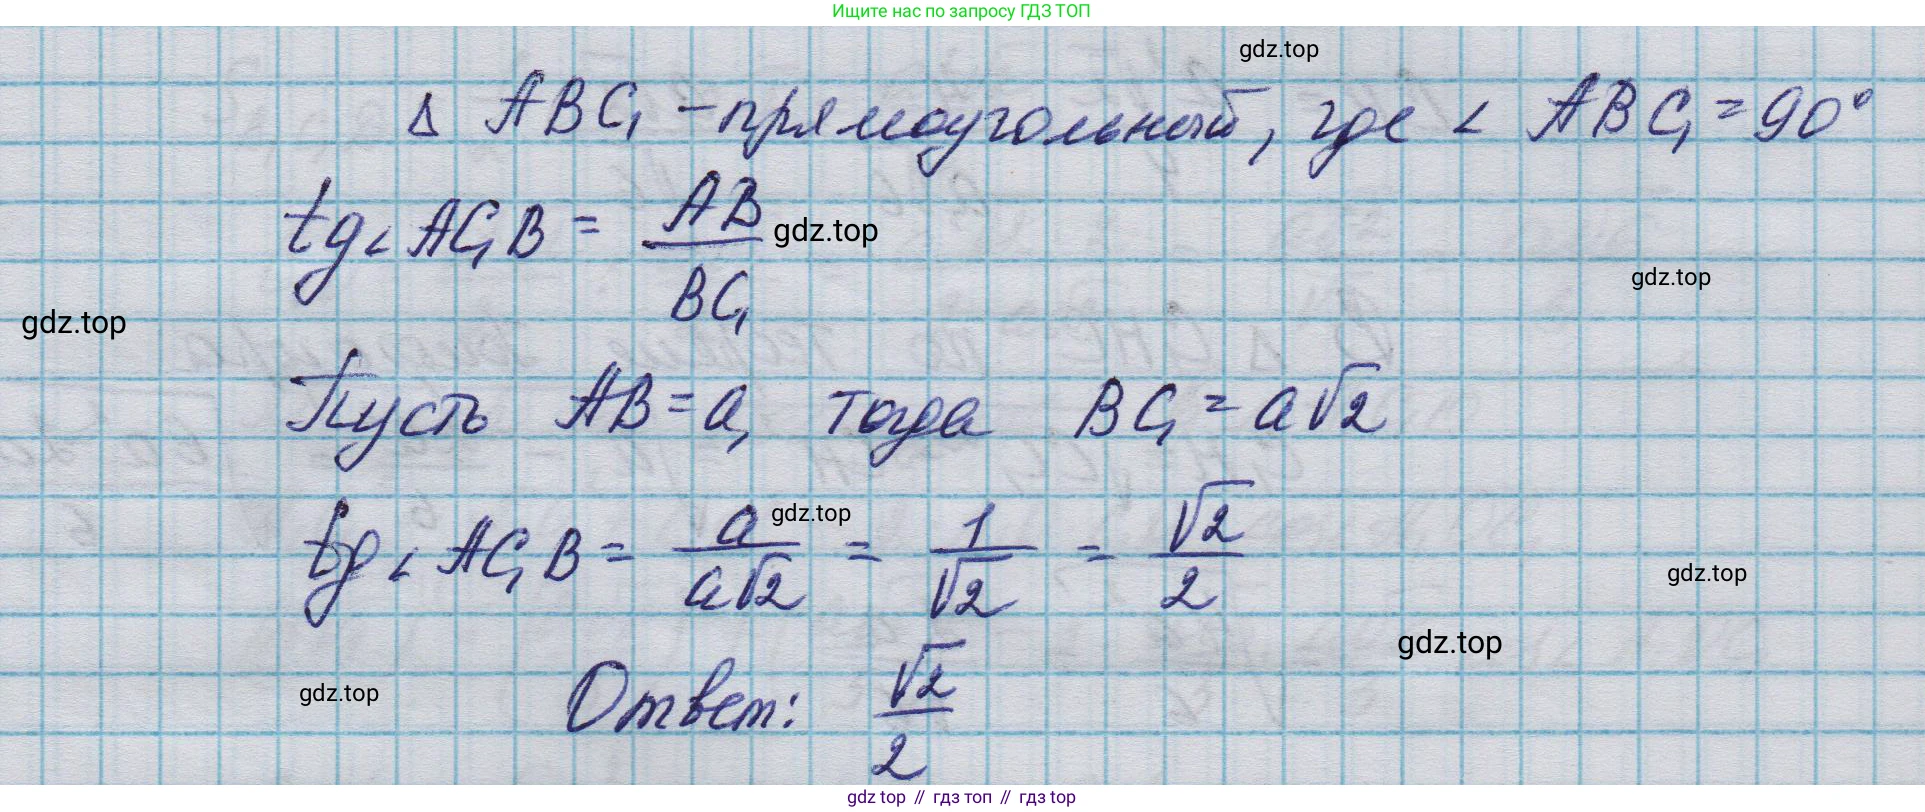 Ищите нас по запросу ГДЗ ТОП
gdz.top
Δ ABC₁ – прямоугольный, где ∠ ABC₁ = 90°
tg∠AC₁B = AB / BC₁
gdz.top
gdz.top
gdz.top
Пусть AB = a, тогда BC₁ = a√2
gdz.top
tg∠AC₁B = a / a√2 = 1 / √2 = √2 / 2
gdz.top
gdz.top
gdz.top
Ответ: √2 / 2
gdz top // гдз топ // гдз top